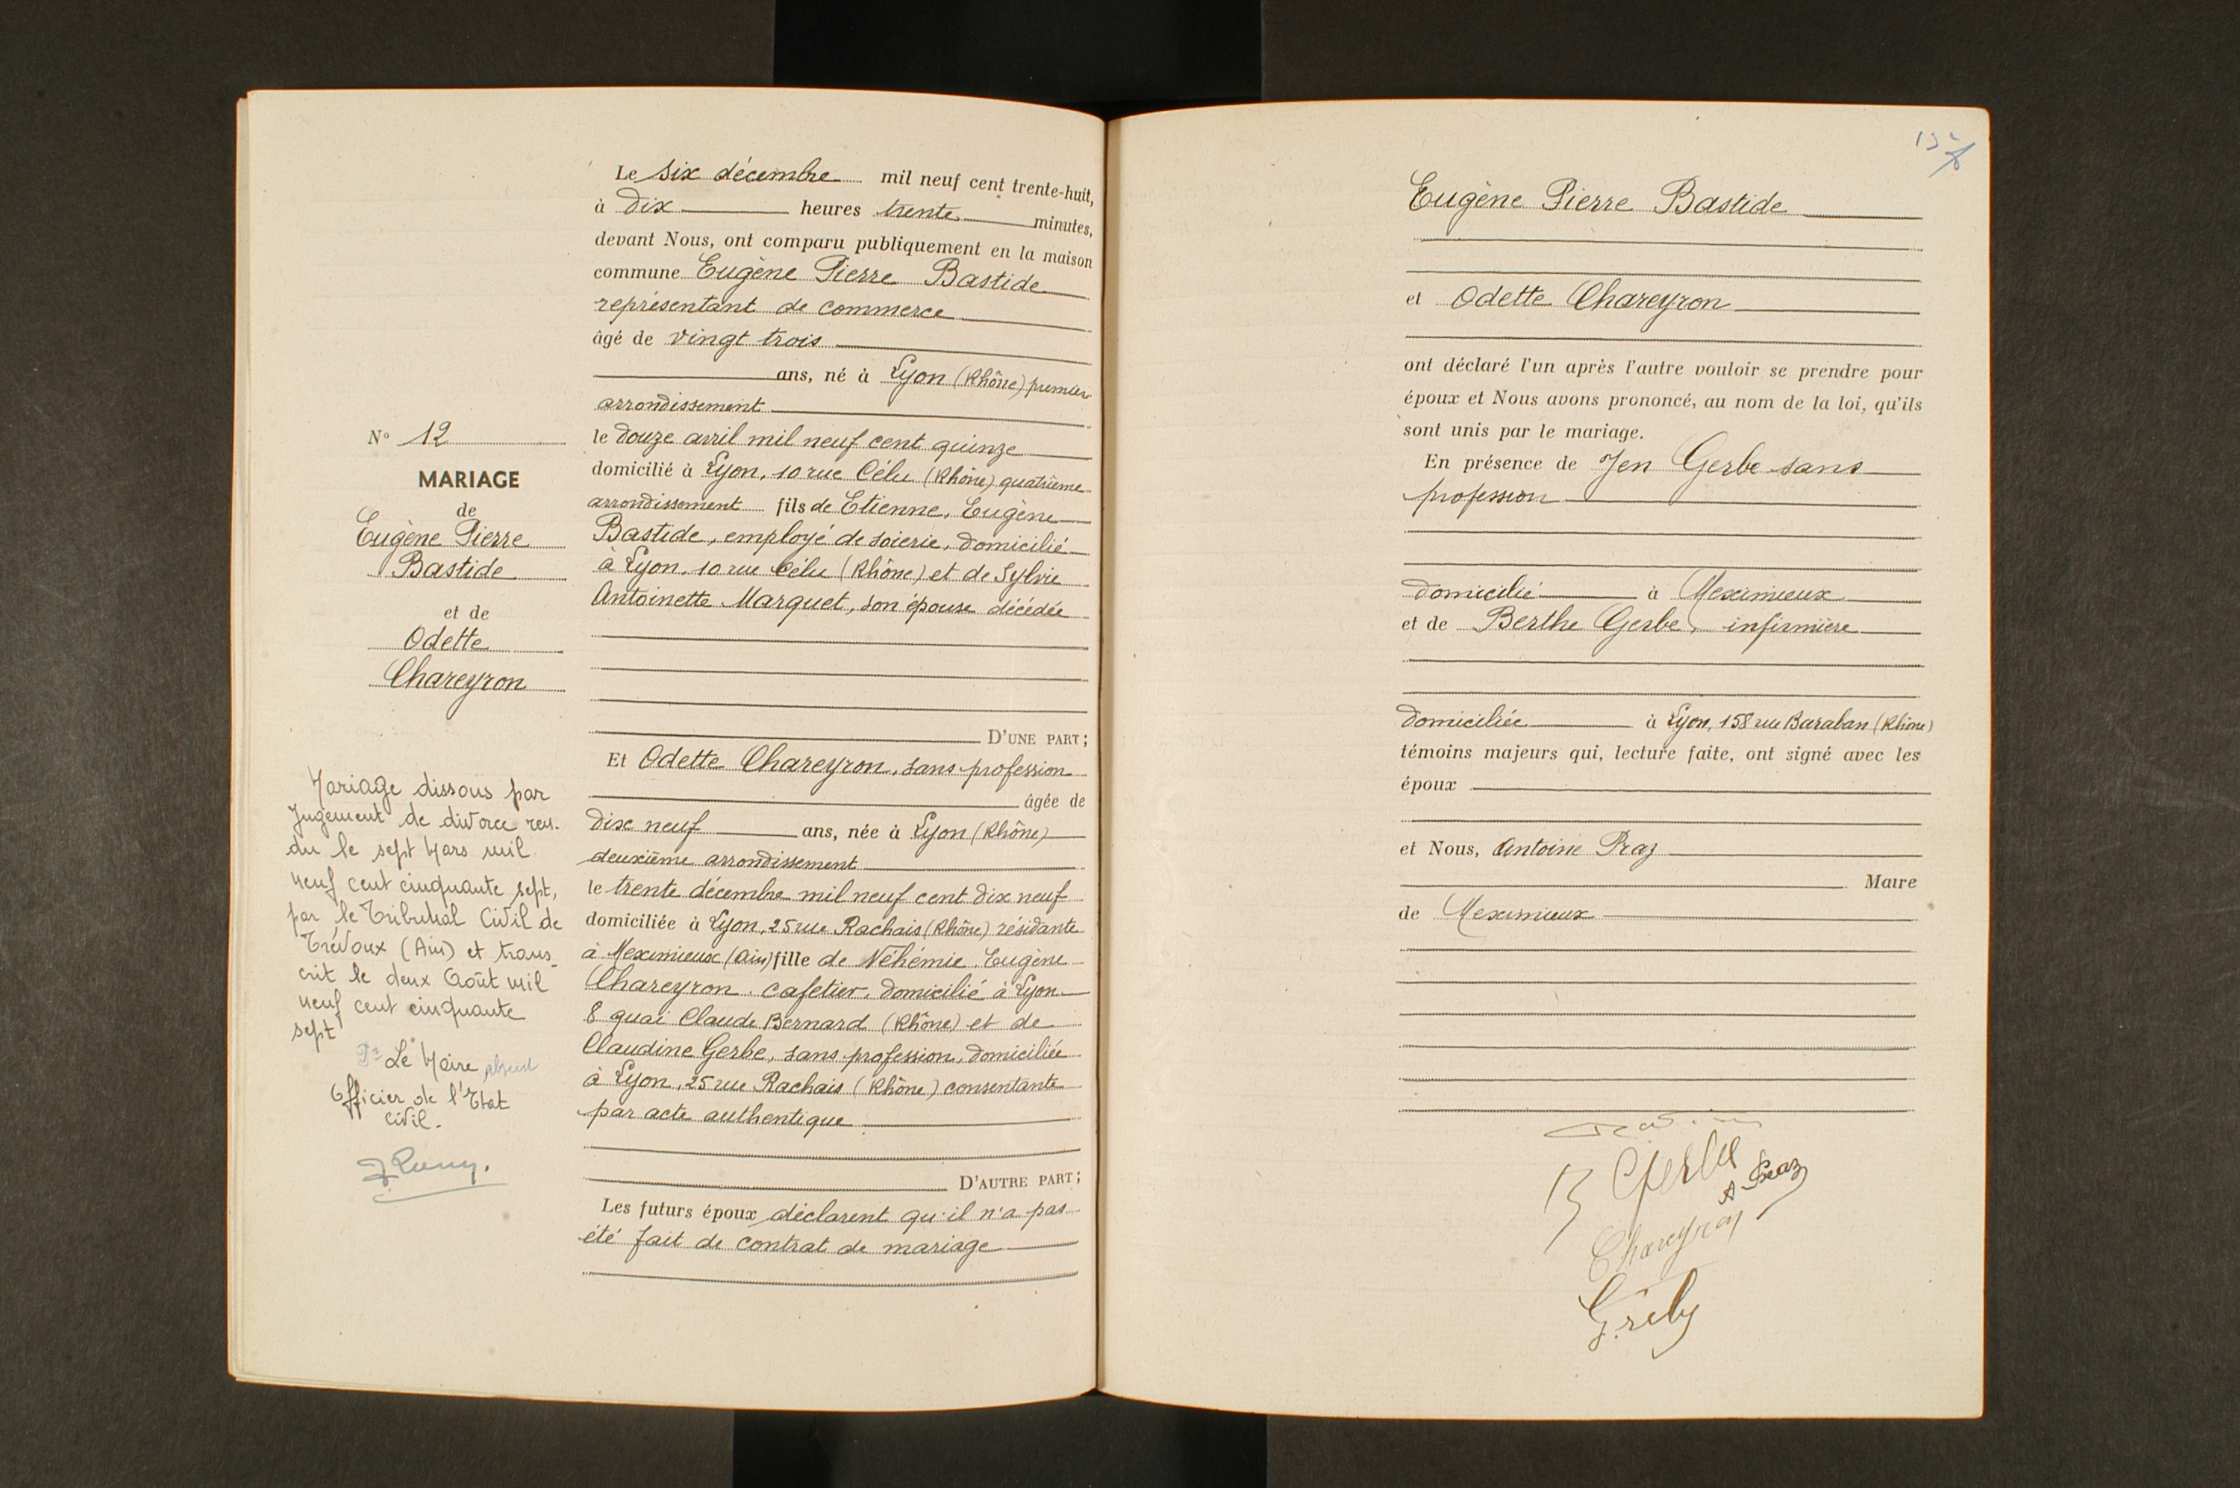 Le six décembre mil neuf cent trente-huit,
à dix heures trente minutes,
devant Nous, ont comparu publiquement en la maison
commune Eugène Pierre Bastide
représentant de commerce
âgé de vingt trois
ans, né à Lyon (Rhône) premier
arrondissement
le douze avril mil neuf cent quinze
domicilié à Lyon, 10 rue Célu (Rhône) quatrième
arrondissement fils de Etienne, Eugène
Bastide, employé de soierie, domicilié
à Lyon, 10 rue Célu (Rhône) et de Sylvie
Antoinette Marquet, son épouse décédée
D'UNE PART;
Et Odette Chareyron, sans profession
âgée de
dix neuf ans, née à Lyon (Rhône)
deuxième arrondissement
le trente décembre mil neuf cent dix neuf
domiciliée à Lyon, 25 rue Rachais (Rhône) résidante
à Meximieux (Ain) fille de Néhémie Eugène
Chareyron cafetier, domicilié à Lyon
8 quai Claude Bernard (Rhône) et de
Claudine Gerbe, sans profession, domiciliée
à Lyon, 25 rue Rachais (Rhône) consentante
par acte authentique
D'AUTRE PART;
Les futurs époux déclarent qu'il n'a pas
été fait de contrat de mariage
N° 12
MARIAGE
de
Eugène Pierre
Bastide
et de
Odette
Chareyron
Mariage dissous par
Jugement de divorce ren-
du le sept Mars mil
neuf cent cinquante sept,
par le Tribunal Civil de
Trévoux (Ain) et trans-
crit le deux Août mil
neuf cent cinquante
sept
Pr Le Maire absent
Officier de l'Etat
Civil.
137
Eugène Pierre Bastide
et Odette Chareyron
ont déclaré l'un après l'autre vouloir se prendre pour
époux et Nous avons prononcé, au nom de la loi, qu'ils
sont unis par le mariage.
En présence de Jen Gerbe sans
profession
domicilié à Meximieux
et de Berthe Gerbe, infirmière
domiciliée à Lyon, 158 rue Baraban (Rhône)
témoins majeurs qui, lecture faite, ont signé avec les
époux
et Nous, Antoine Praz
Maire
de Meximieux
B Gerbe
A Praz
Chareyron